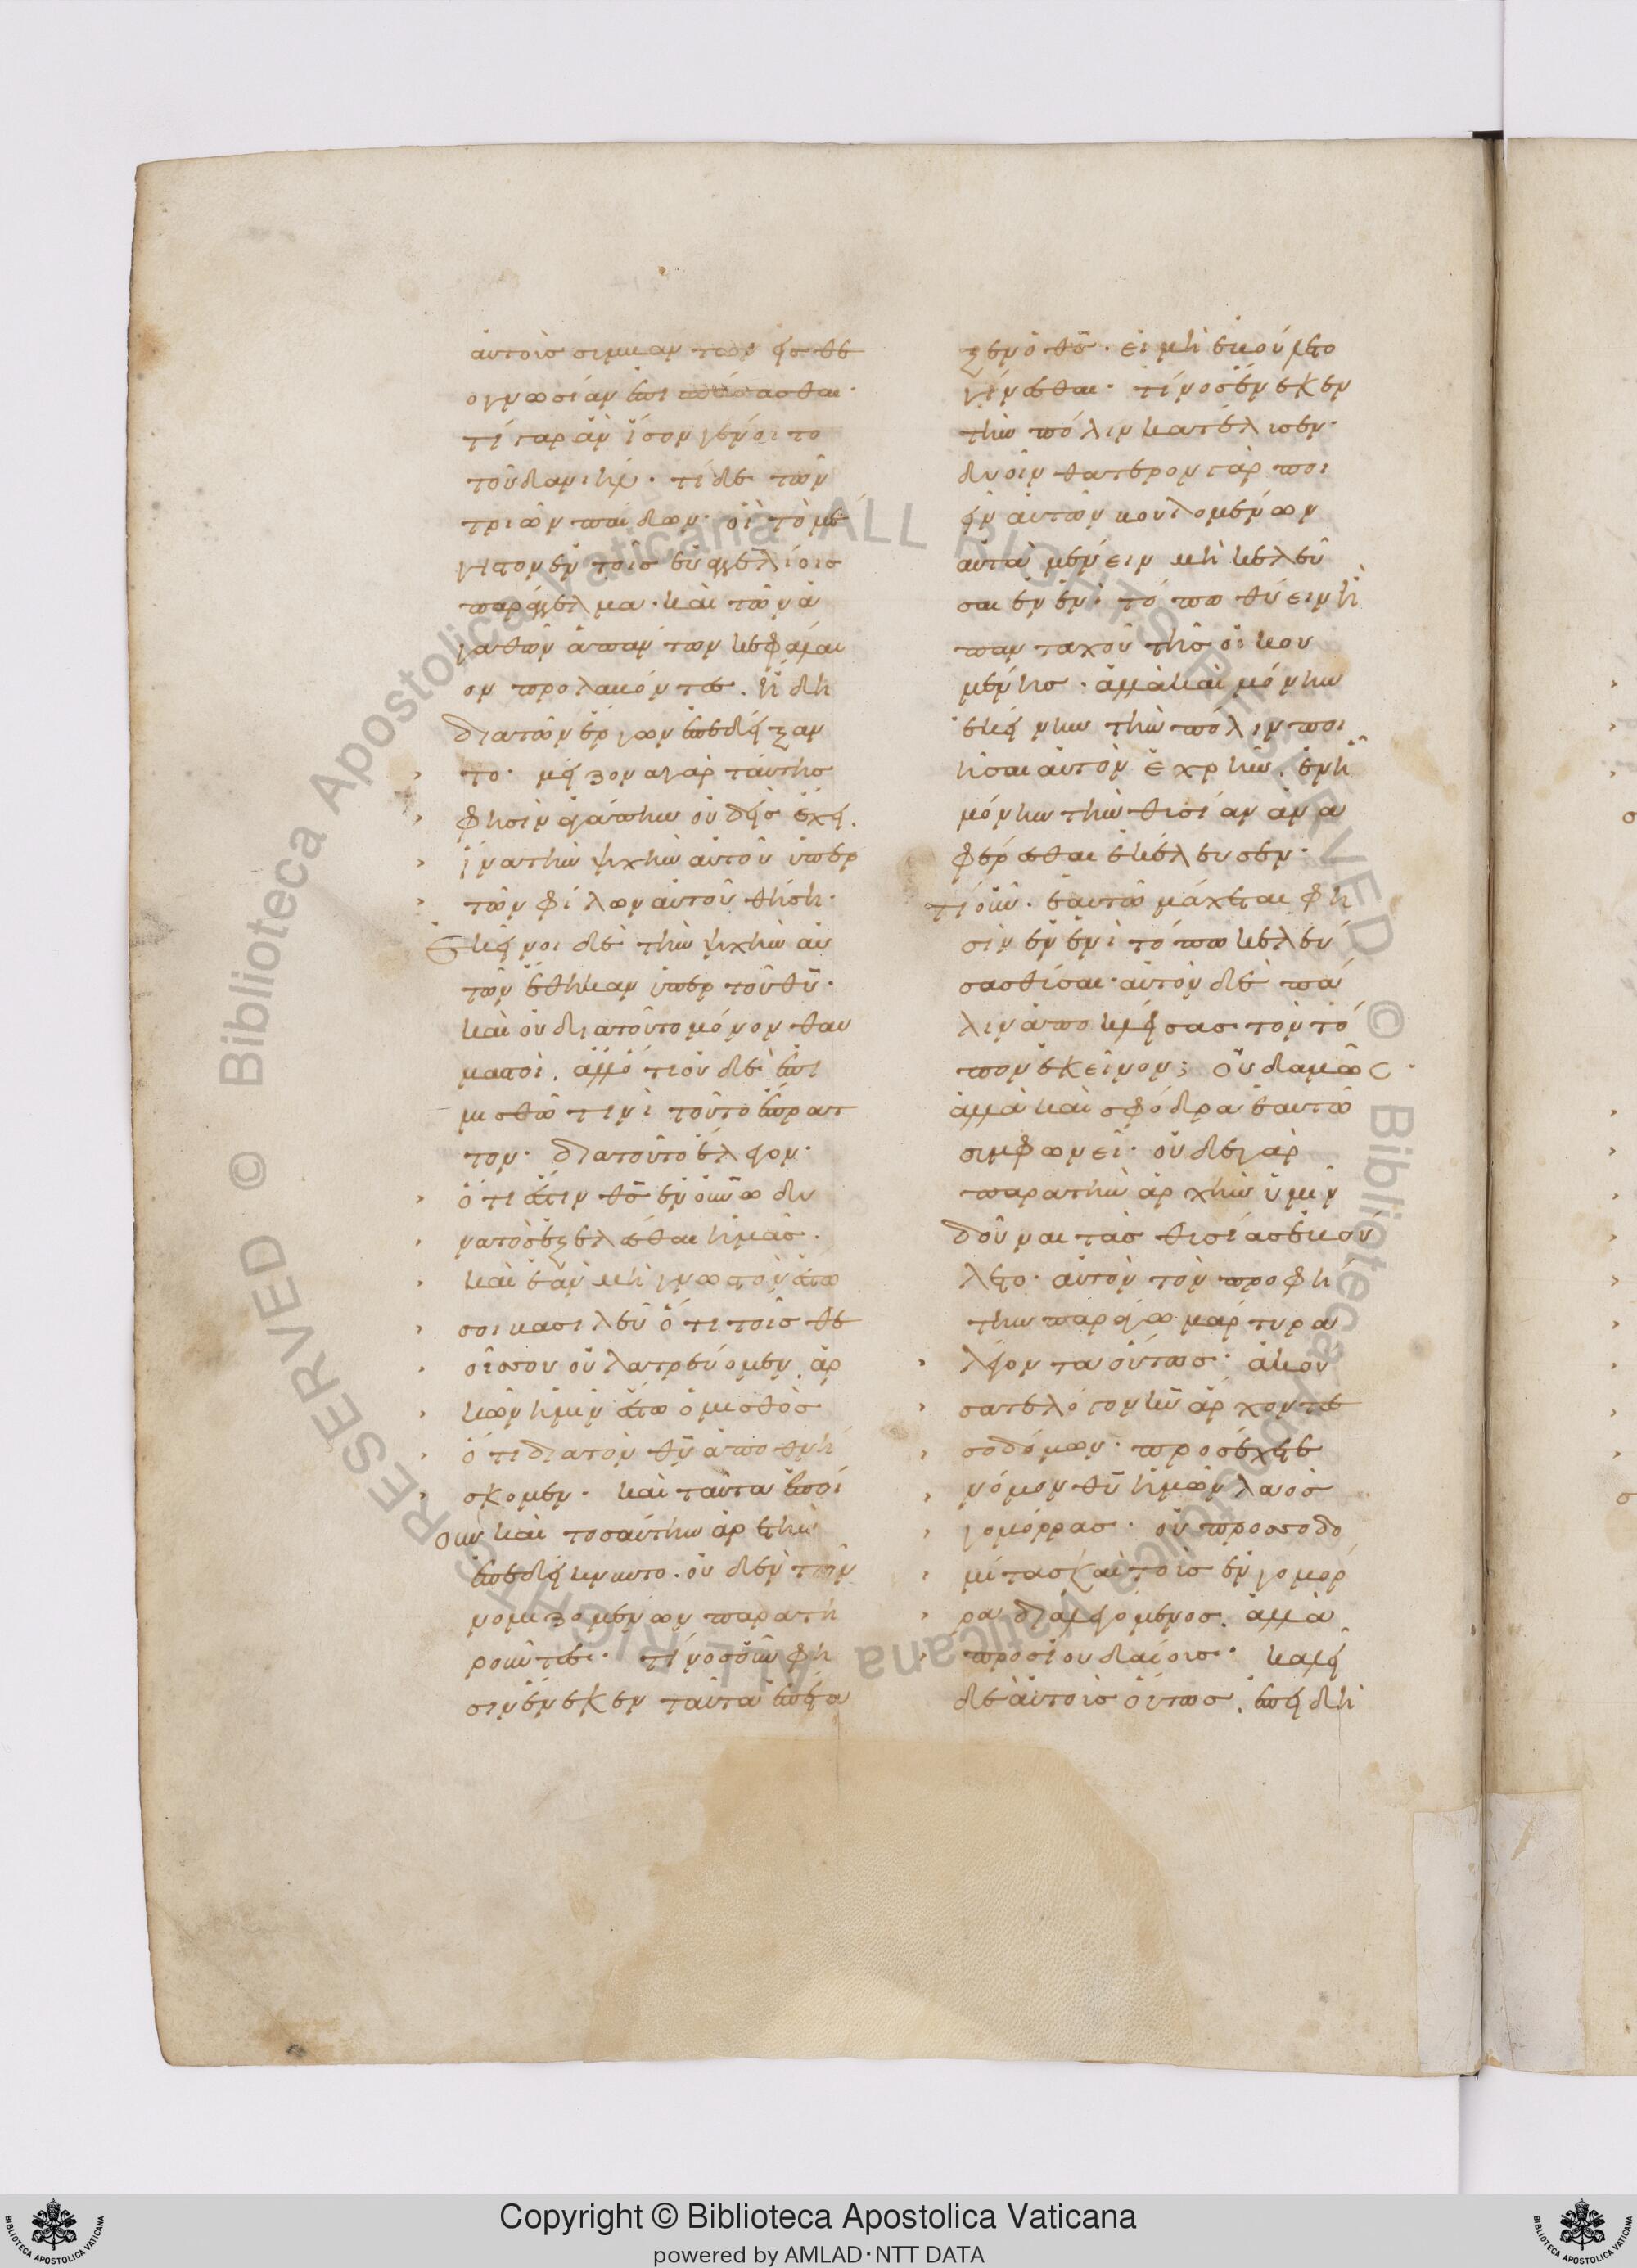 αὐτοῖσ συμβὰν τῶν εἰσ θε
ογνωσίαν ἐπισπάσασθαι·
τί γὰρ ἂν ἴσον γένοιτο
τοῦ δανιήλ· τί δὲ τῶν
τριῶν παίδων· οἳ τὸ μέ
γιστον ἐν τοῖσ εὐαγγελίοισ
παράγγελμα· καὶ τῶν ἀ
γαθῶν ἁπάντων κεφάλαι
ον προλαβόντεσ. ἤδη
διὰ τῶν ἔργων ἐπεδείξαν
το· μείζονα γὰρ ταύτησ
φησὶν ἀγάπην οὐδεὶσ ἔχει.
ἵνα τὴν ψυχὴν αὐτοῦ ὑπὲρ
τῶν φίλων αὐτοῦ θήσῃ·
Ἐκεῖνοι δὲ τὴν ψυχὴν αὐ
τῶν ἔθηκαν ὑπὲρ τοῦ θῦ·
καὶ οὐ διὰ τοῦτο μόνον θαυ
μαστοὶ. ἀλλ' ὅτι οὐδὲ ἐπὶ
μισθῶ τινὶ τοῦτο ἔπρατ
τον· διὰ τοῦτο ἔλεγον·
ὅτι ἔστιν θσ ἐν οὐνῶ δυ
νατὸσ ἐξελέσθαι ἡμᾶσ.
καὶ ἐὰν μὴ γνωστὸν ἔστω
σοι βασιλεῦ ὅτι τοῖσ θε
οῖσ σου οὐ λατρεύομεν. ἀρ
κῶν ἡμῖν ἔστω ὁ μισθὸσ
ὅτι διὰ τὸν θν ἀποθνή
σκομεν· καὶ ταῦτα ἐποί
ουν καὶ τοσαύτην ἀρετὴν
ἐπεδείκνυντο. οὐδὲν τῶν
νομιζομένων παρατη
ροῦντεσ· τίνοσ οὖν φη
σὶν ἕνεκεν ταῦτα ἐπέτα
ξεν ὁ θσ· εἰ μὴ ἐβούλετο
γίνεσθαι· τίνοσ ἕνεκεν
τὴν πόλιν κατέλυσεν·
δυοῖν θάτερον γὰρ ποι
εῖν αὐτὸν βουλομένων
αὐτὰ μένειν μὴ κελεῦ
σαι ἐν ἑνὶ τόπω θύειν ἢ
πανταχοῦ τῆσ οἰκου
μένησ· ἀλλὰ καὶ μόνην
ἐκείνην τὴν πόλιν ποι
ῆσαι αὐτὸν ἐχρῆν. ἐν ᾗ
μόνην τὴν θυσίαν ἀνα
φέρεσθαι ἐκέλευσεν·
τί οὖν· ἑαυτῶ μάχεται φη
σὶν ἐν ἑνὶ τόπω κελεύ
σασ θῦσαι· αὐτὸν δὲ πά
λιν ἀποκλείσασ τὸν τό
πον ἐκεῖνον; Οὐδαμῶσ·
ἀλλὰ καὶ σφόδρα ἑαυτῶ
συμφωνεῖ· οὐδὲ γὰρ
παρὰ τὴν ἀρχὴν ὑμῖν
δοῦναι τὰσ θυσίασ ἐβού
λετο· αὐτὸν τὸν προφή
την παράγω μάρτυρα
λέγοντα οὕτωσ· ἀκού
σατε λόγον κῦ ἄρχοντεσ
σοδόμων· προσέχετε
νόμον θῦ ἡμῶν λαὸσ
γομόρρασ· οὐ πρὸσ σοδο
μίτασ καὶ τοῖσ ἐν γομόρ
ρα διαλεγόμενοσ. ἀλλὰ
πρὸσ ἰουδαίοισ· καλεῖ
δὲ αὐτοὺσ οὕτωσ. ἐπειδὴ